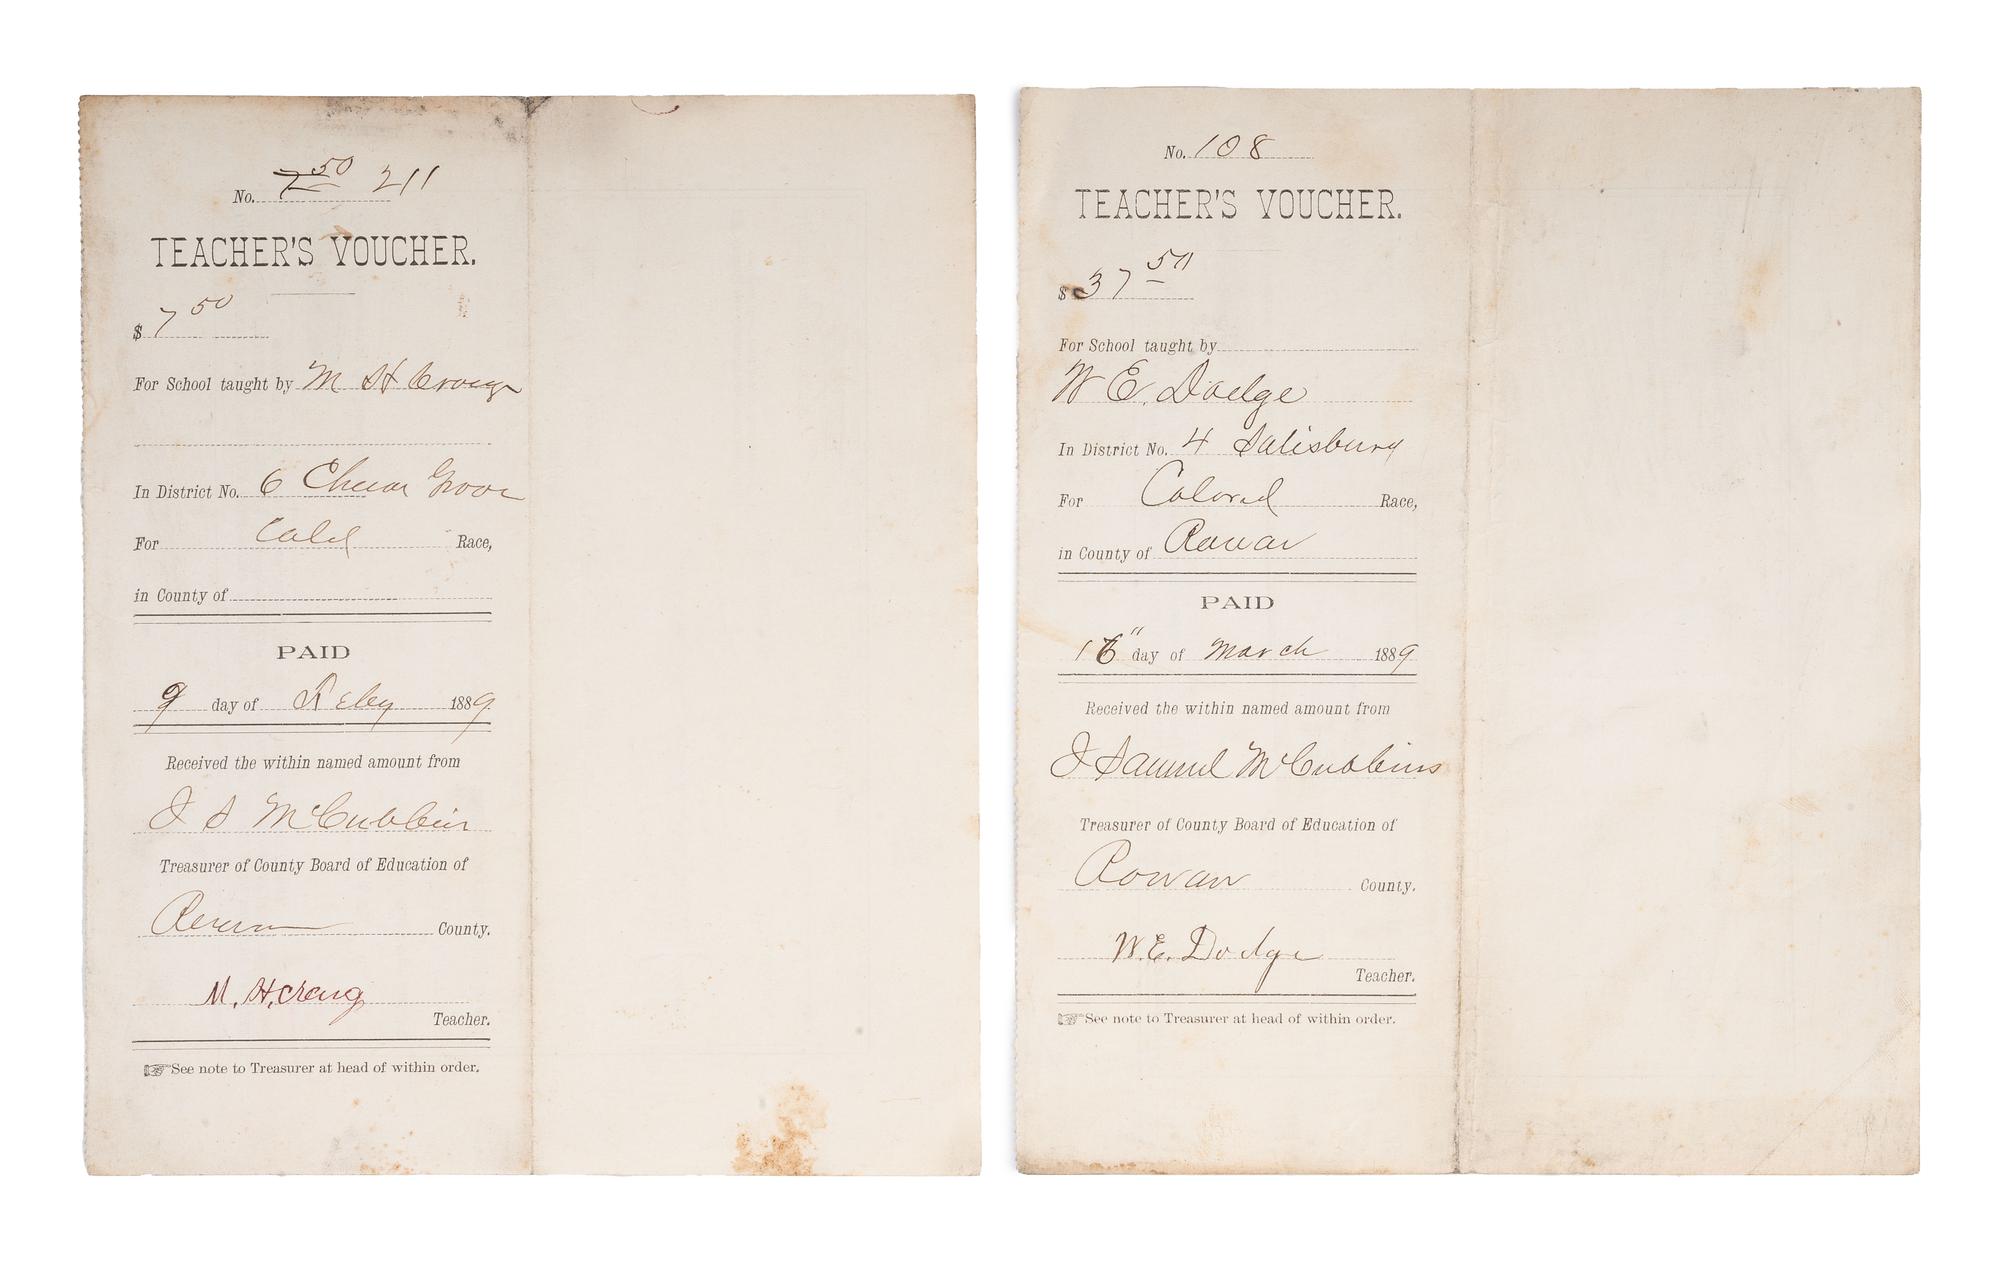 No. 7 50 211
TEACHER'S VOUCHER.
$ 7 50
For School taught by M H Craige
In District No. 6 China Grove
For Cold Race,
in County of
PAID
9 day of Feby 1889
Received the within named amount from
J S McCubbins
Treasurer of County Board of Education of
Rowan County.
M. H. Craig
Teacher.
See note to Treasurer at head of within order.
No. 108
TEACHER'S VOUCHER.
$ 37 50
For School taught by
W E. Dodge
In District No. 4 Salisbury
For Colored Race,
in County of Rowan
PAID
16" day of March 1889
Received the within named amount from
J Samuel McCubbins
Treasurer of County Board of Education of
Rowan County.
W. E. Dodge
Teacher.
See note to Treasurer at head of within order.